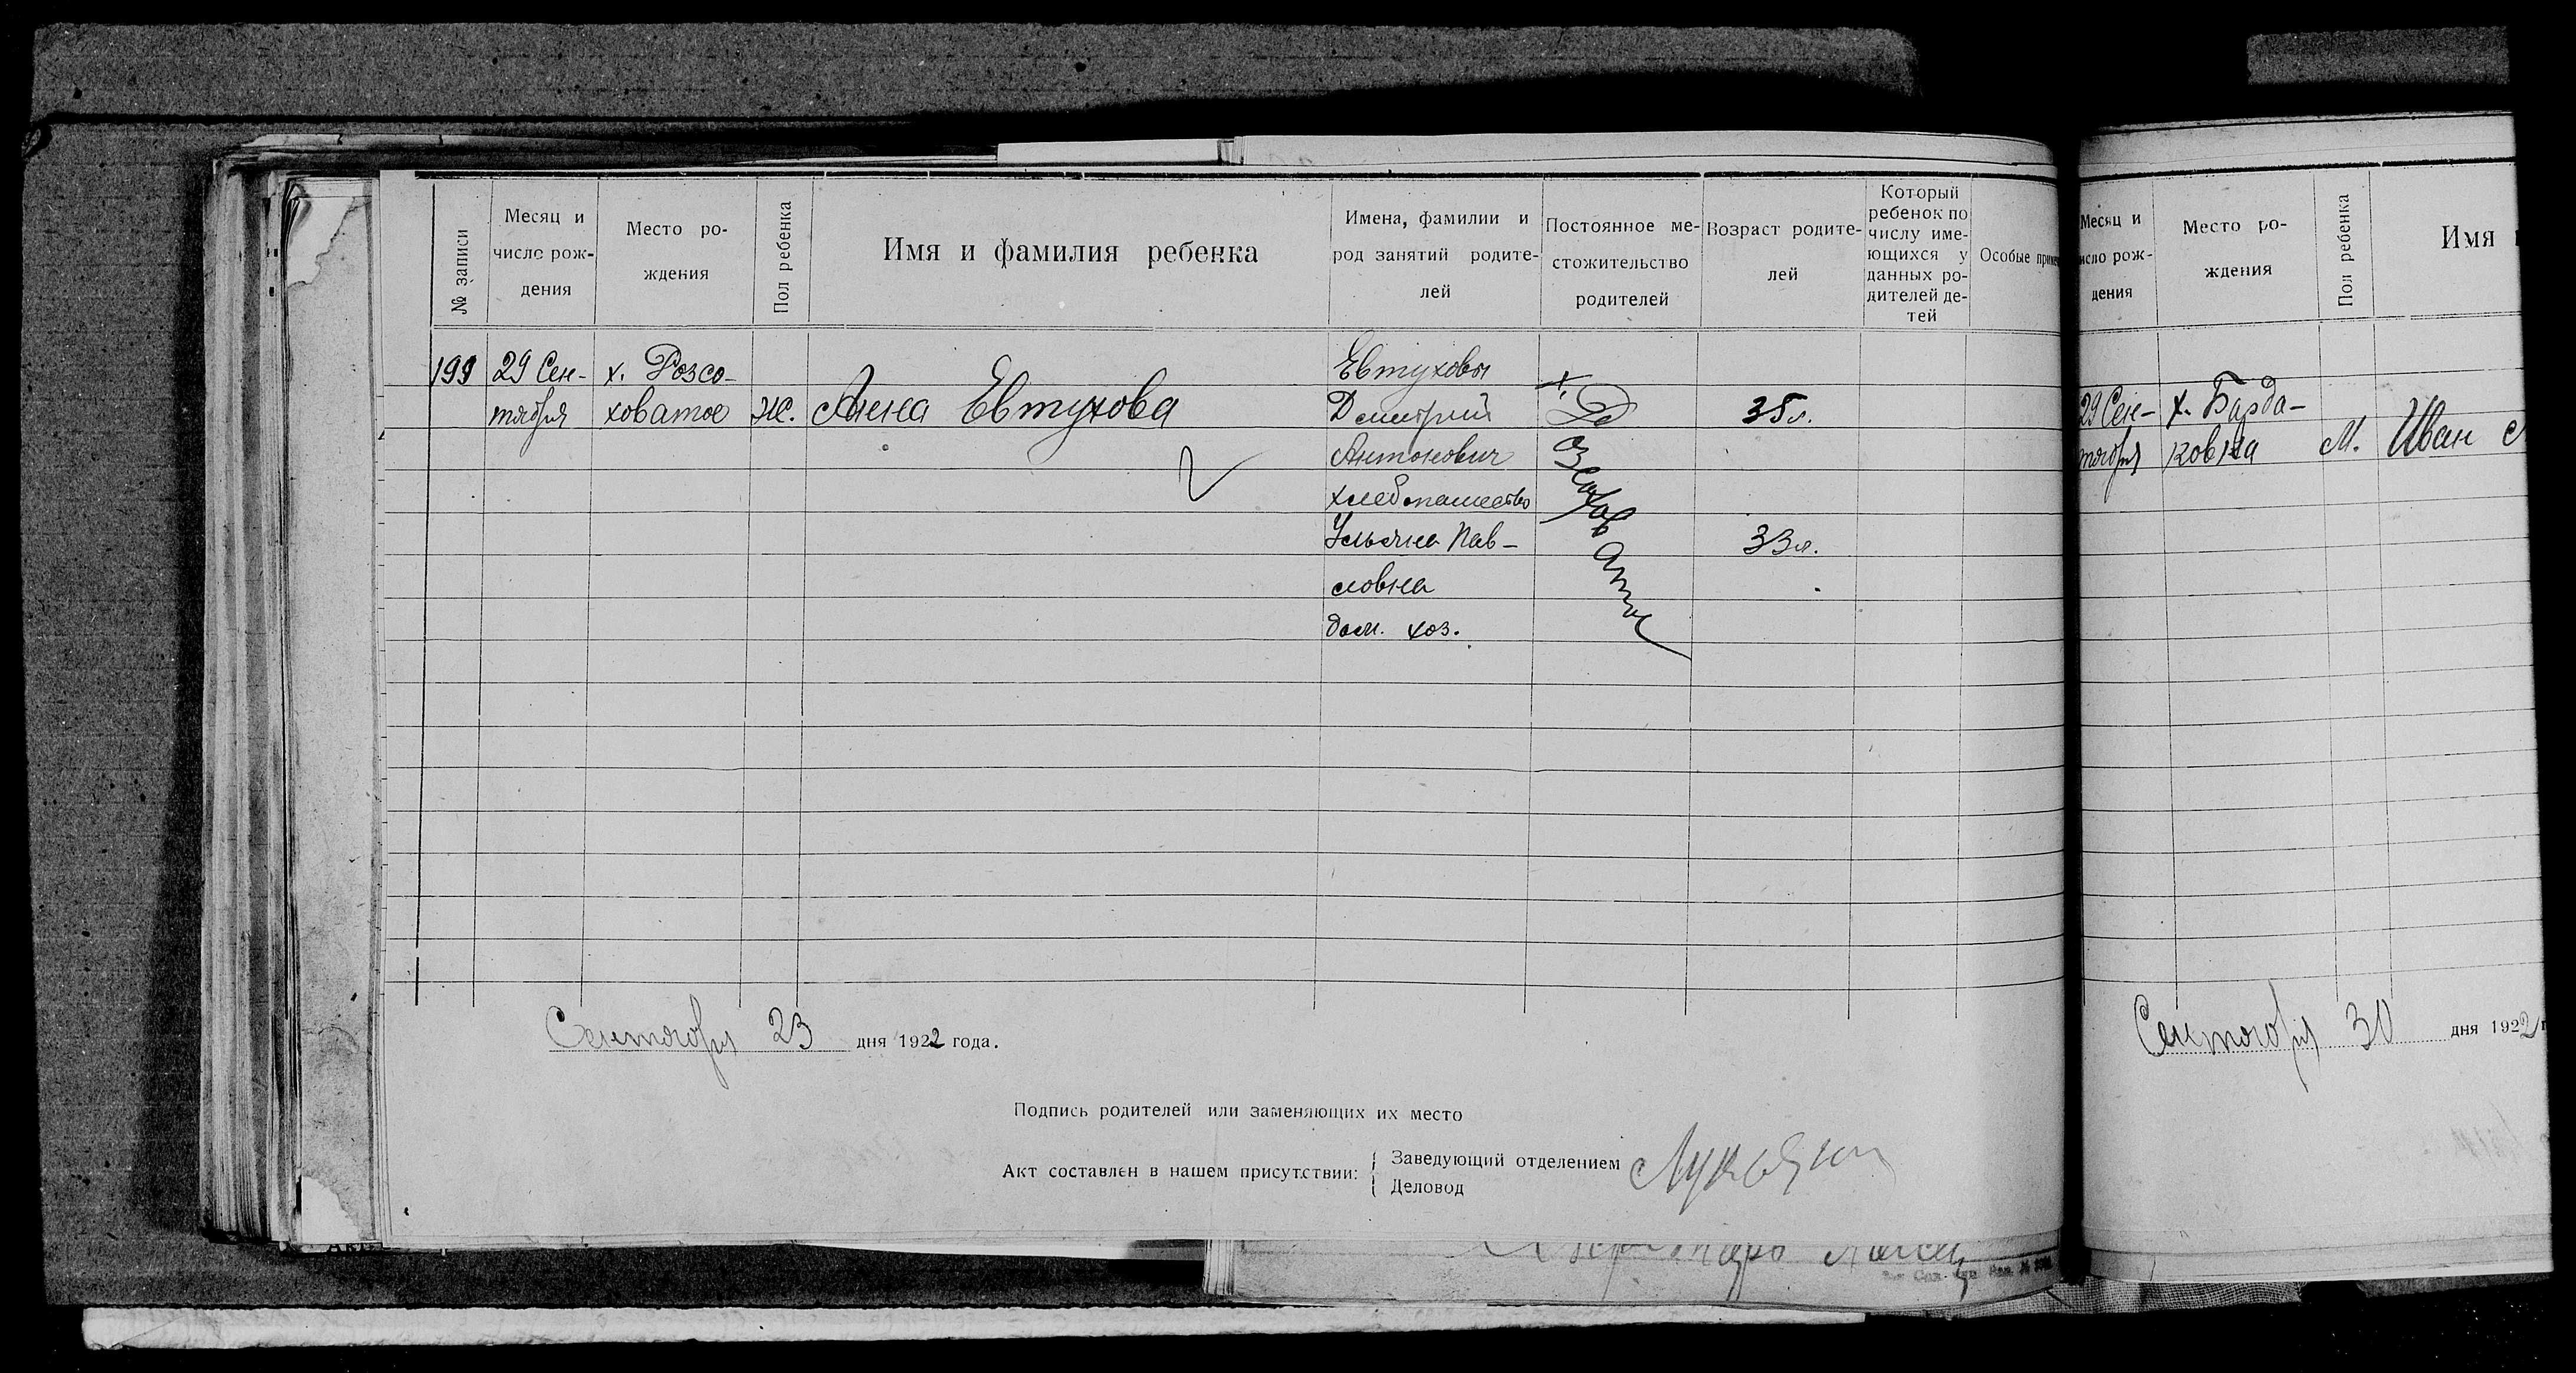 № записи
Месяц и
число рож-
дения
Место ро-
ждения
Пол ребенка
Имя и фамилия ребенка
Имена, фамилии и
род занятий родите-
лей
Постоянное ме-
стожительство
родителей
Возраст родите-
лей
Который
ребенок по
числу име-
ющихся у
данных ро-
дителей де-
тей
Особые
199
29 Сен-
тября
х. Розсо-
ховатое
Ж.
Анна Евтухова
Евтуховы
Дмитрий
Антонович
хлебопашество
Ульяна Пав-
ловна
дом. хоз.
35 л.
33 л.
Сентября 23 дня 1922 года.
Подпись родителей или заменяющих их место
Акт составлен в нашем присутствии:
Заведующий отделением
Деловод
Месяц и
число рож-
дения
Место ро-
ждения
Пол ребенка
Имя
29 Сен-
тября
х. Барда-
ковка
М.
Иван
Сентября 30 дня 1922